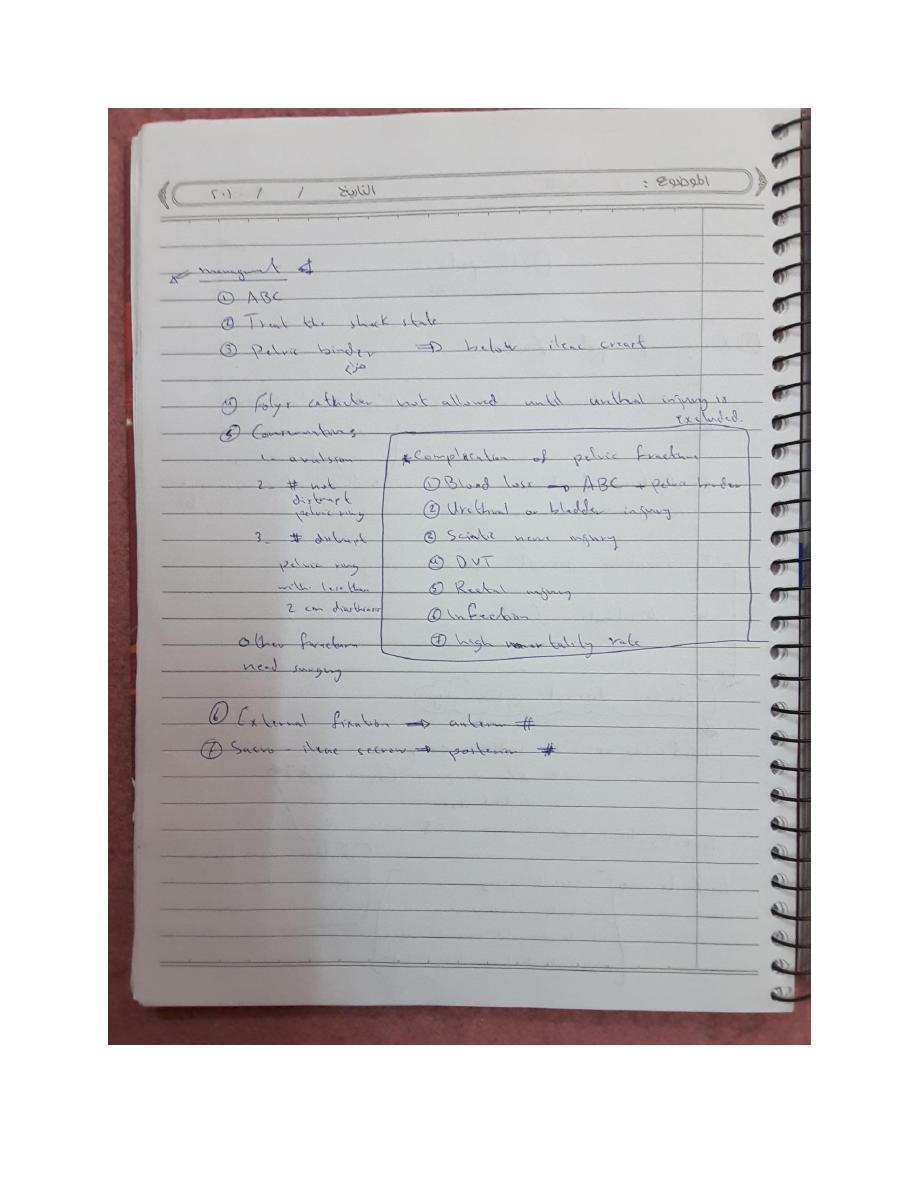 الموضوع :
التاريخ / / ٢٠١
* managment
① ABC
② Treat the shock state
③ Pelvic binder ⇒ below ileac creast
حزام
④ Folys catheter but allowed until urethral injury is
excluded.
⑤ Conservative
1- avulsion
2- # not
distrupt
pelvic ring
3- # disrupt
pelvic ring
with less than
2 cm diasthesis
other fracture
need surgery
* Complication of pelvic fracture
① Blood loss → ABC + pelvic binder
② Urethral or bladder injury
③ Sciatic nerve injury
④ DVT
⑤ Rectal injury
⑥ Infection
⑦ high mortality rate
⑥ External fixation → anterior #
⑦ Sacro-ileac screw → posterior #